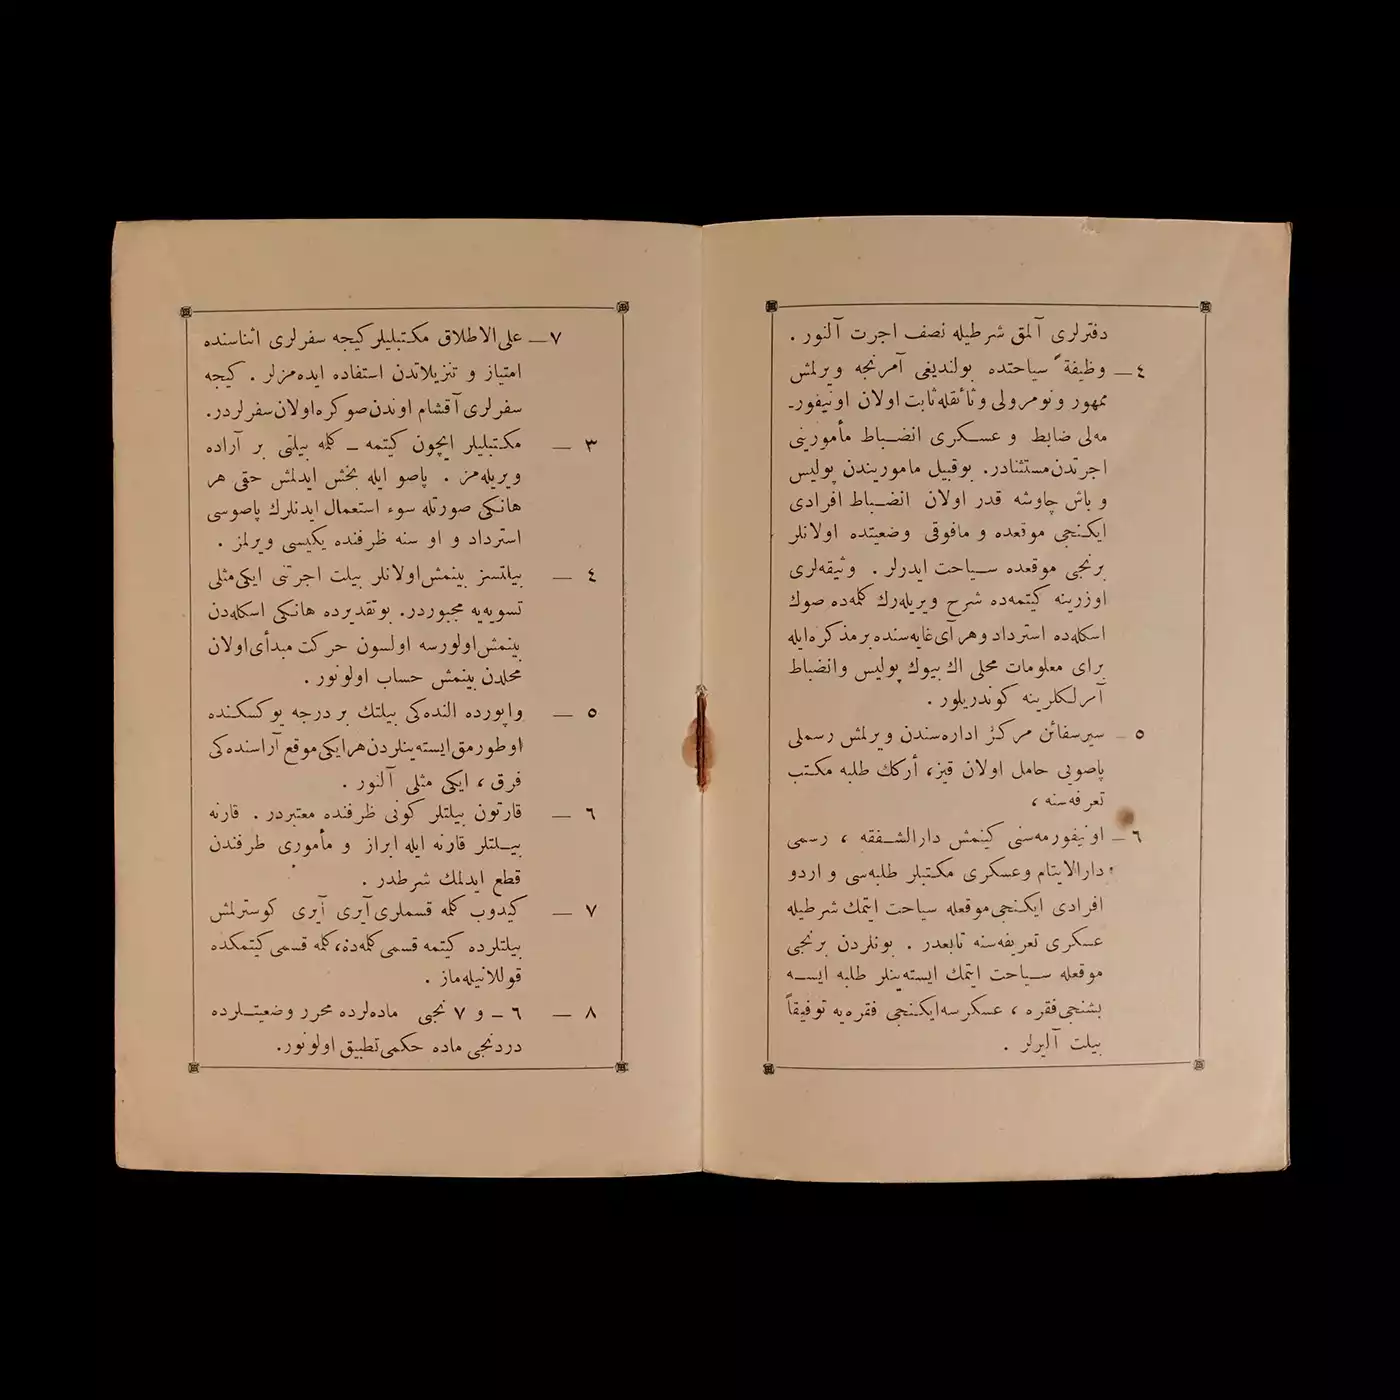 دفترلری آلمق شرطیله نصف اجرت آلنور .
٤ ــ وظیفةً سیاحتده بولندیغی آمرنجه ویرلمش
ممهور و نومرولی وثائقله ثابت اولان اونیفور-
مه‌لی ضابط و عسکری انضباط مأمورینی
اجرتدن مستثنادر. بوقبیل ماموریندن پولیس
و باش چاوشه قدر اولان انضباط افرادی
ایکنجی موقعده و مافوقی وضعیتده اولانلر
برنجی موقعده سیاحت ایدرلر . وثیقه‌لری
اوزرینه کیتمه‌ده شرح ویریله‌رك کلمه‌ده صوك
اسکله‌ده استرداد و هر آی غایه‌سنده بر مذکره ایله
برای معلومات محلی اك بیوك پولیس وانضباط
آمرلکلرینه کوندریلور .
٥ ــ سیرسفائن مرکز اداره‌سندن ویرلمش رسملی
پاصویی حامل اولان قیز، أرکك طلبه مکتب
تعرفه‌سنه ،
٦ ــ اونیفورمه‌سنی کینمش دارالشفقه ، رسمی
دارالایتام وعسکری مکتبلر طلبه‌سی و اردو
افرادی ایکنجی موقعله سیاحت ایتمك شرطیله
عسکری تعریفه‌سنه تابعدر . بونلردن برنجی
موقعله سیاحت ایتمك ایسته‌ینلر طلبه ایسه
بشنجی فقره ، عسکرسه ایکنجی فقره‌یه توفیقاً
بیلت آلیرلر .
٧ــ علی الاطلاق مکتبلیلر کیجه سفرلری اثناسنده
امتیاز و تنزیلاتدن استفاده ایده‌مزلر . کیجه
سفرلری آقشام اوندن صوکره اولان سفرلردر.
٣ ــ مکتبلیلر ایچون کیتمه ــ کلمه بیلتی بر آراده
ویریله‌مز . پاصو ایله بخش ایدلمش حقی هر
هانکی صورتله سوء استعمال ایدنلرك پاصوسی
استرداد و او سنه ظرفنده یکیسی ویرلمز .
٤ ــ بیلتسز بینمش اولانلر بیلت اجرتنی ایکی مثلی
تسویه‌یه مجبوردر. بوتقدیرده هانکی اسکله‌دن
بینمش اولورسه اولسون حرکت مبدأی اولان
محلدن بینمش حساب اولونور .
٥ ــ واپورده النده‌کی بیلتك بر درجه یوکسکنده
اوطورمق ایسته‌ینلردن هر ایکی موقع آراسنده‌کی
فرق ، ایکی مثلی آلنور .
٦ ــ قارتون بیلتلر کونی ظرفنده معتبردر . قارنه
بیلتلر قارنه ایله ابراز و مأموری طرفندن
قطع ایدلمك شرطدر .
٧ ــ کیدوب کلمه قسملری آیری آیری کوسترلمش
بیلتلرده کیتمه قسمی کلمه‌ده، کلمه قسمی کیتمکده
قوللانیله‌ماز .
٨ ــ ٦ ــ و ٧ نجی ماده‌لرده محرر وضعیتلرده
دردنجی ماده حکمی تطبیق اولونور.